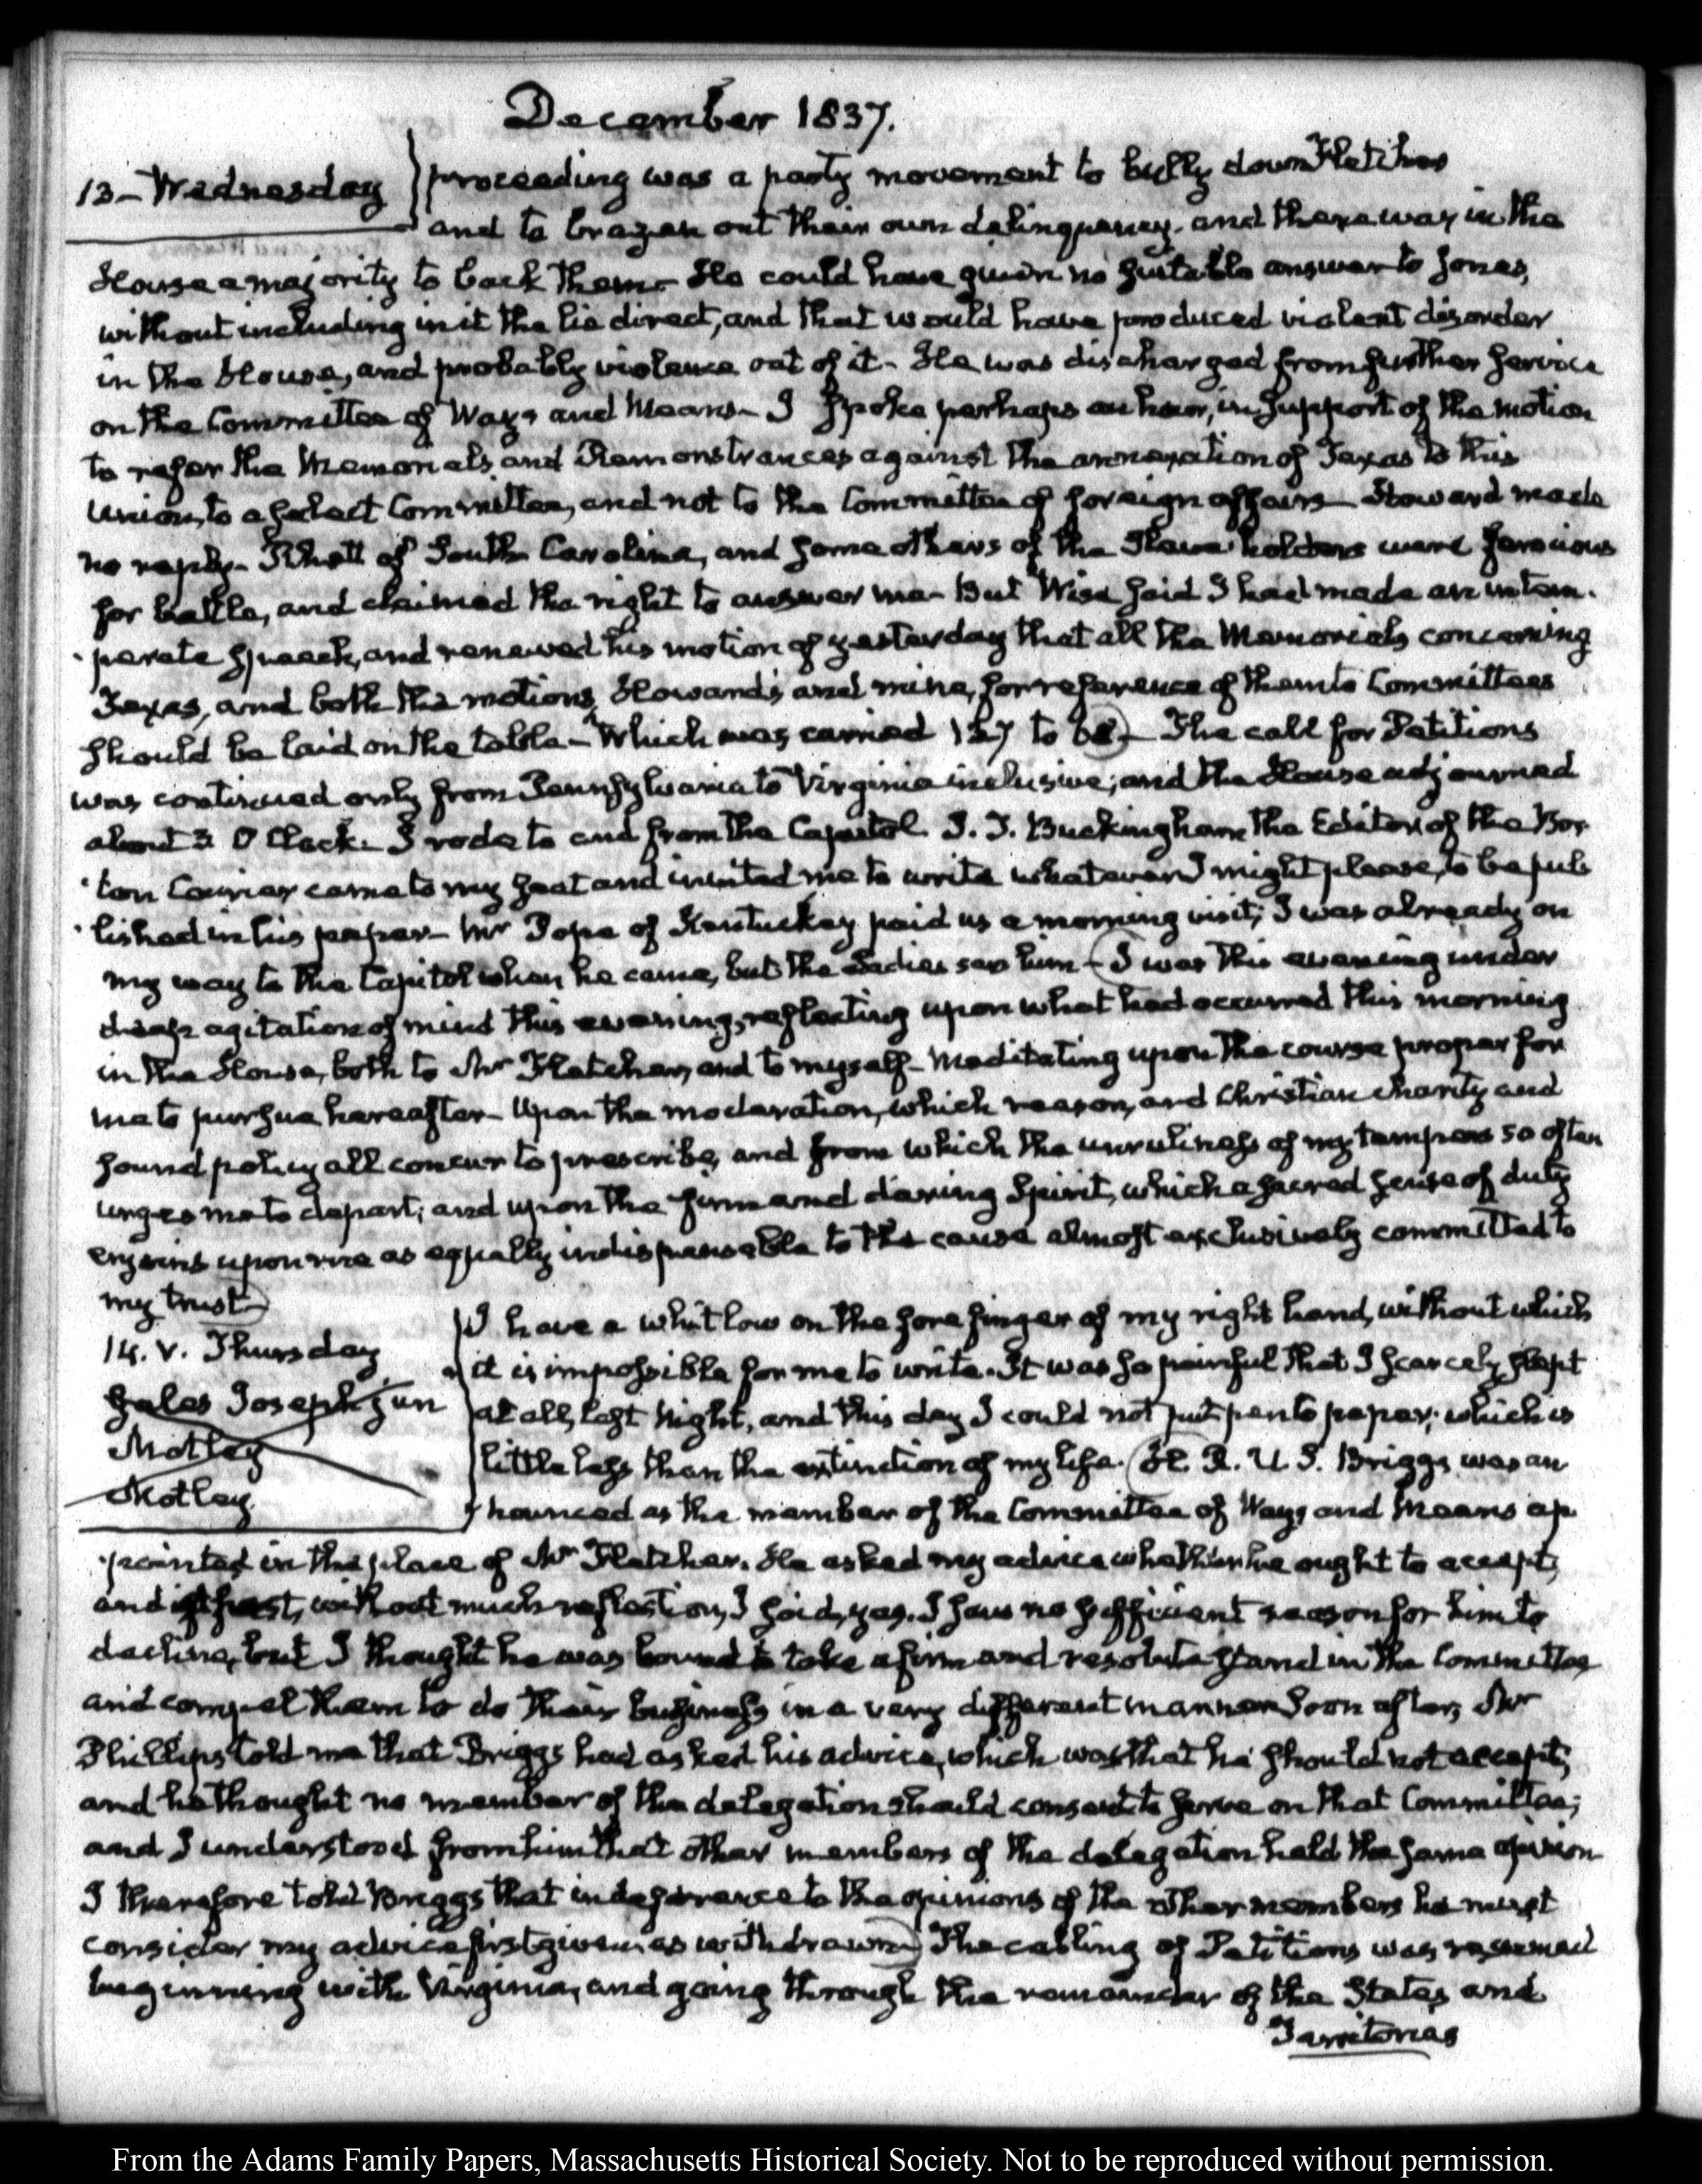 December 1837.
13 – Wednesday
proceeding was a party movement to bully down Fletcher
and to brazen out their own delinquency, and there was in the
House a majority to back them – He could have given no suitable answer to Jones,
without including in it the lie direct, and that would have produced violent disorder
in the House, and probably violence out of it – He was discharged from further service
on the Committee of Ways and Means – I spoke perhaps an hour, in support of the motion
to refer the Memorials and Remonstrances against the annexation of Texas to this
Union, to a select Committee, and not to the Committee of foreign affairs – Howard made
no reply – Rhett of South Carolina, and some others of the Slave holders were ferocious
for battle, and claimed the right to answer me – But Wise said I had made an intem-
-perate speech, and renewed his motion of yesterday that all the Memorials concerning
Texas, and both the motions, Howard's and mine, for reference of them to Committees
should be laid on the table – Which was carried 127 to 68) – The call for Petitions
was continued only from Pennsylvania to Virginia inclusive; and the House adjourned
about 3 O'Clock – I rode to and from the Capitol. J. T. Buckingham the Editor of the Bos-
-ton Courier came to my seat and invited me to write whatever I might please, to be pub-
-lished in his paper – Mr Pope of Kentuckey paid us a morning visit; I was already on
my way to the Capitol when he came, but the Ladies saw him – (I was this evening under
deep agitation of mind this evening, reflecting upon what had occurred this morning
in the House, both to Mr Fletcher, and to myself – Meditating upon the course proper for
me to pursue hereafter – Upon the moderation, which reason, and Christian charity and
sound policy all concur to prescribe, and from which the unruliness of my temper so often
urges me to depart; and upon the firm and daring Spirit, which a sacred sense of duty
enjoins upon me as equally indispensable to the cause almost exclusively committed to
my trust)
14. V. Thursday
Gales Joseph jun
Motley
Motley
I have a whitlow on the fore finger of my right hand, without which
it is impossible for me to write. It was so painful that I scarcely slept
at all, last Night, and this day I could not put pen to paper; which is
little less than the extinction of my life. (H. R. U. S. Briggs was an-
-nounced as the member of the Committee of Ways and Means ap-
-pointed in the place of Mr Fletcher. He asked my advice whether he ought to accept,
and at first, without much reflection, I said, yes. I saw no sufficient reason for him to
decline, but I thought he was bound to take a firm and resolute stand in the Committee
and compel them to do their business in a very different manner. Soon after, Mr
Phillips told me that Briggs had asked his advice, which was that he should not accept;
and he thought no member of the delegation should consent to serve on that Committee;
and I understood from him that other members of the delegation held the same opinion
I therefore told Briggs that in deference to the opinions of the other members he must
consider my advice first given as withdrawn) The calling of Petitions was resumed
beginning with Virginia, and going through the remainder of the States and
Territories
From the Adams Family Papers, Massachusetts Historical Society. Not to be reproduced without permission.